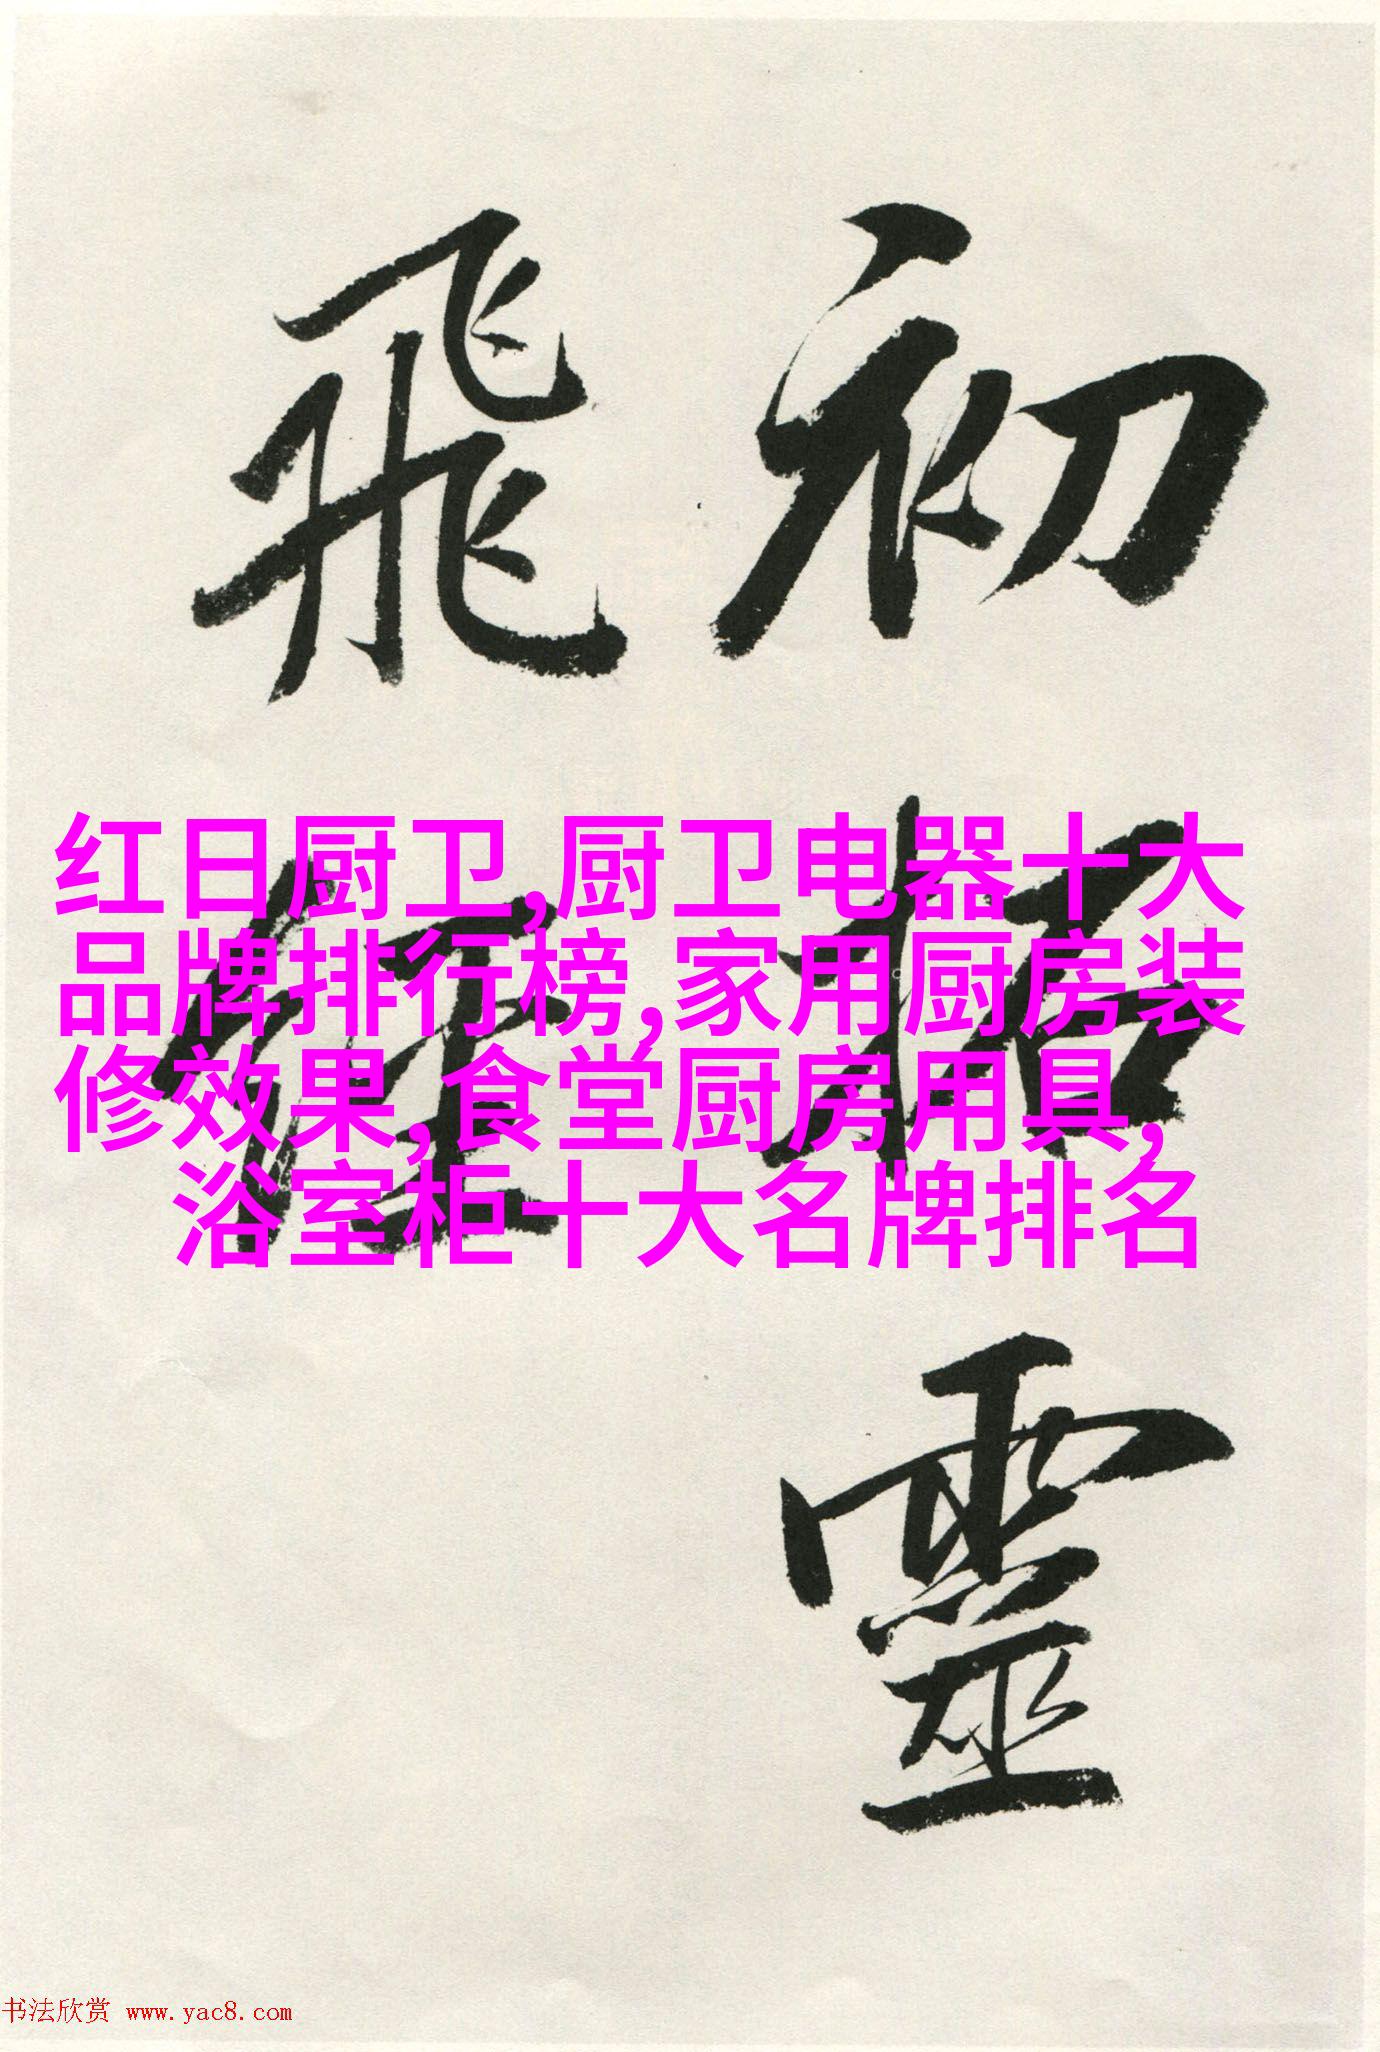 初拓靈
飛經
红日厨卫,厨卫电器十大
品牌排行榜,家用厨房装
修效果,食堂厨房用具,
浴室柜十大名牌排名
书法欣赏 www.yac8.com